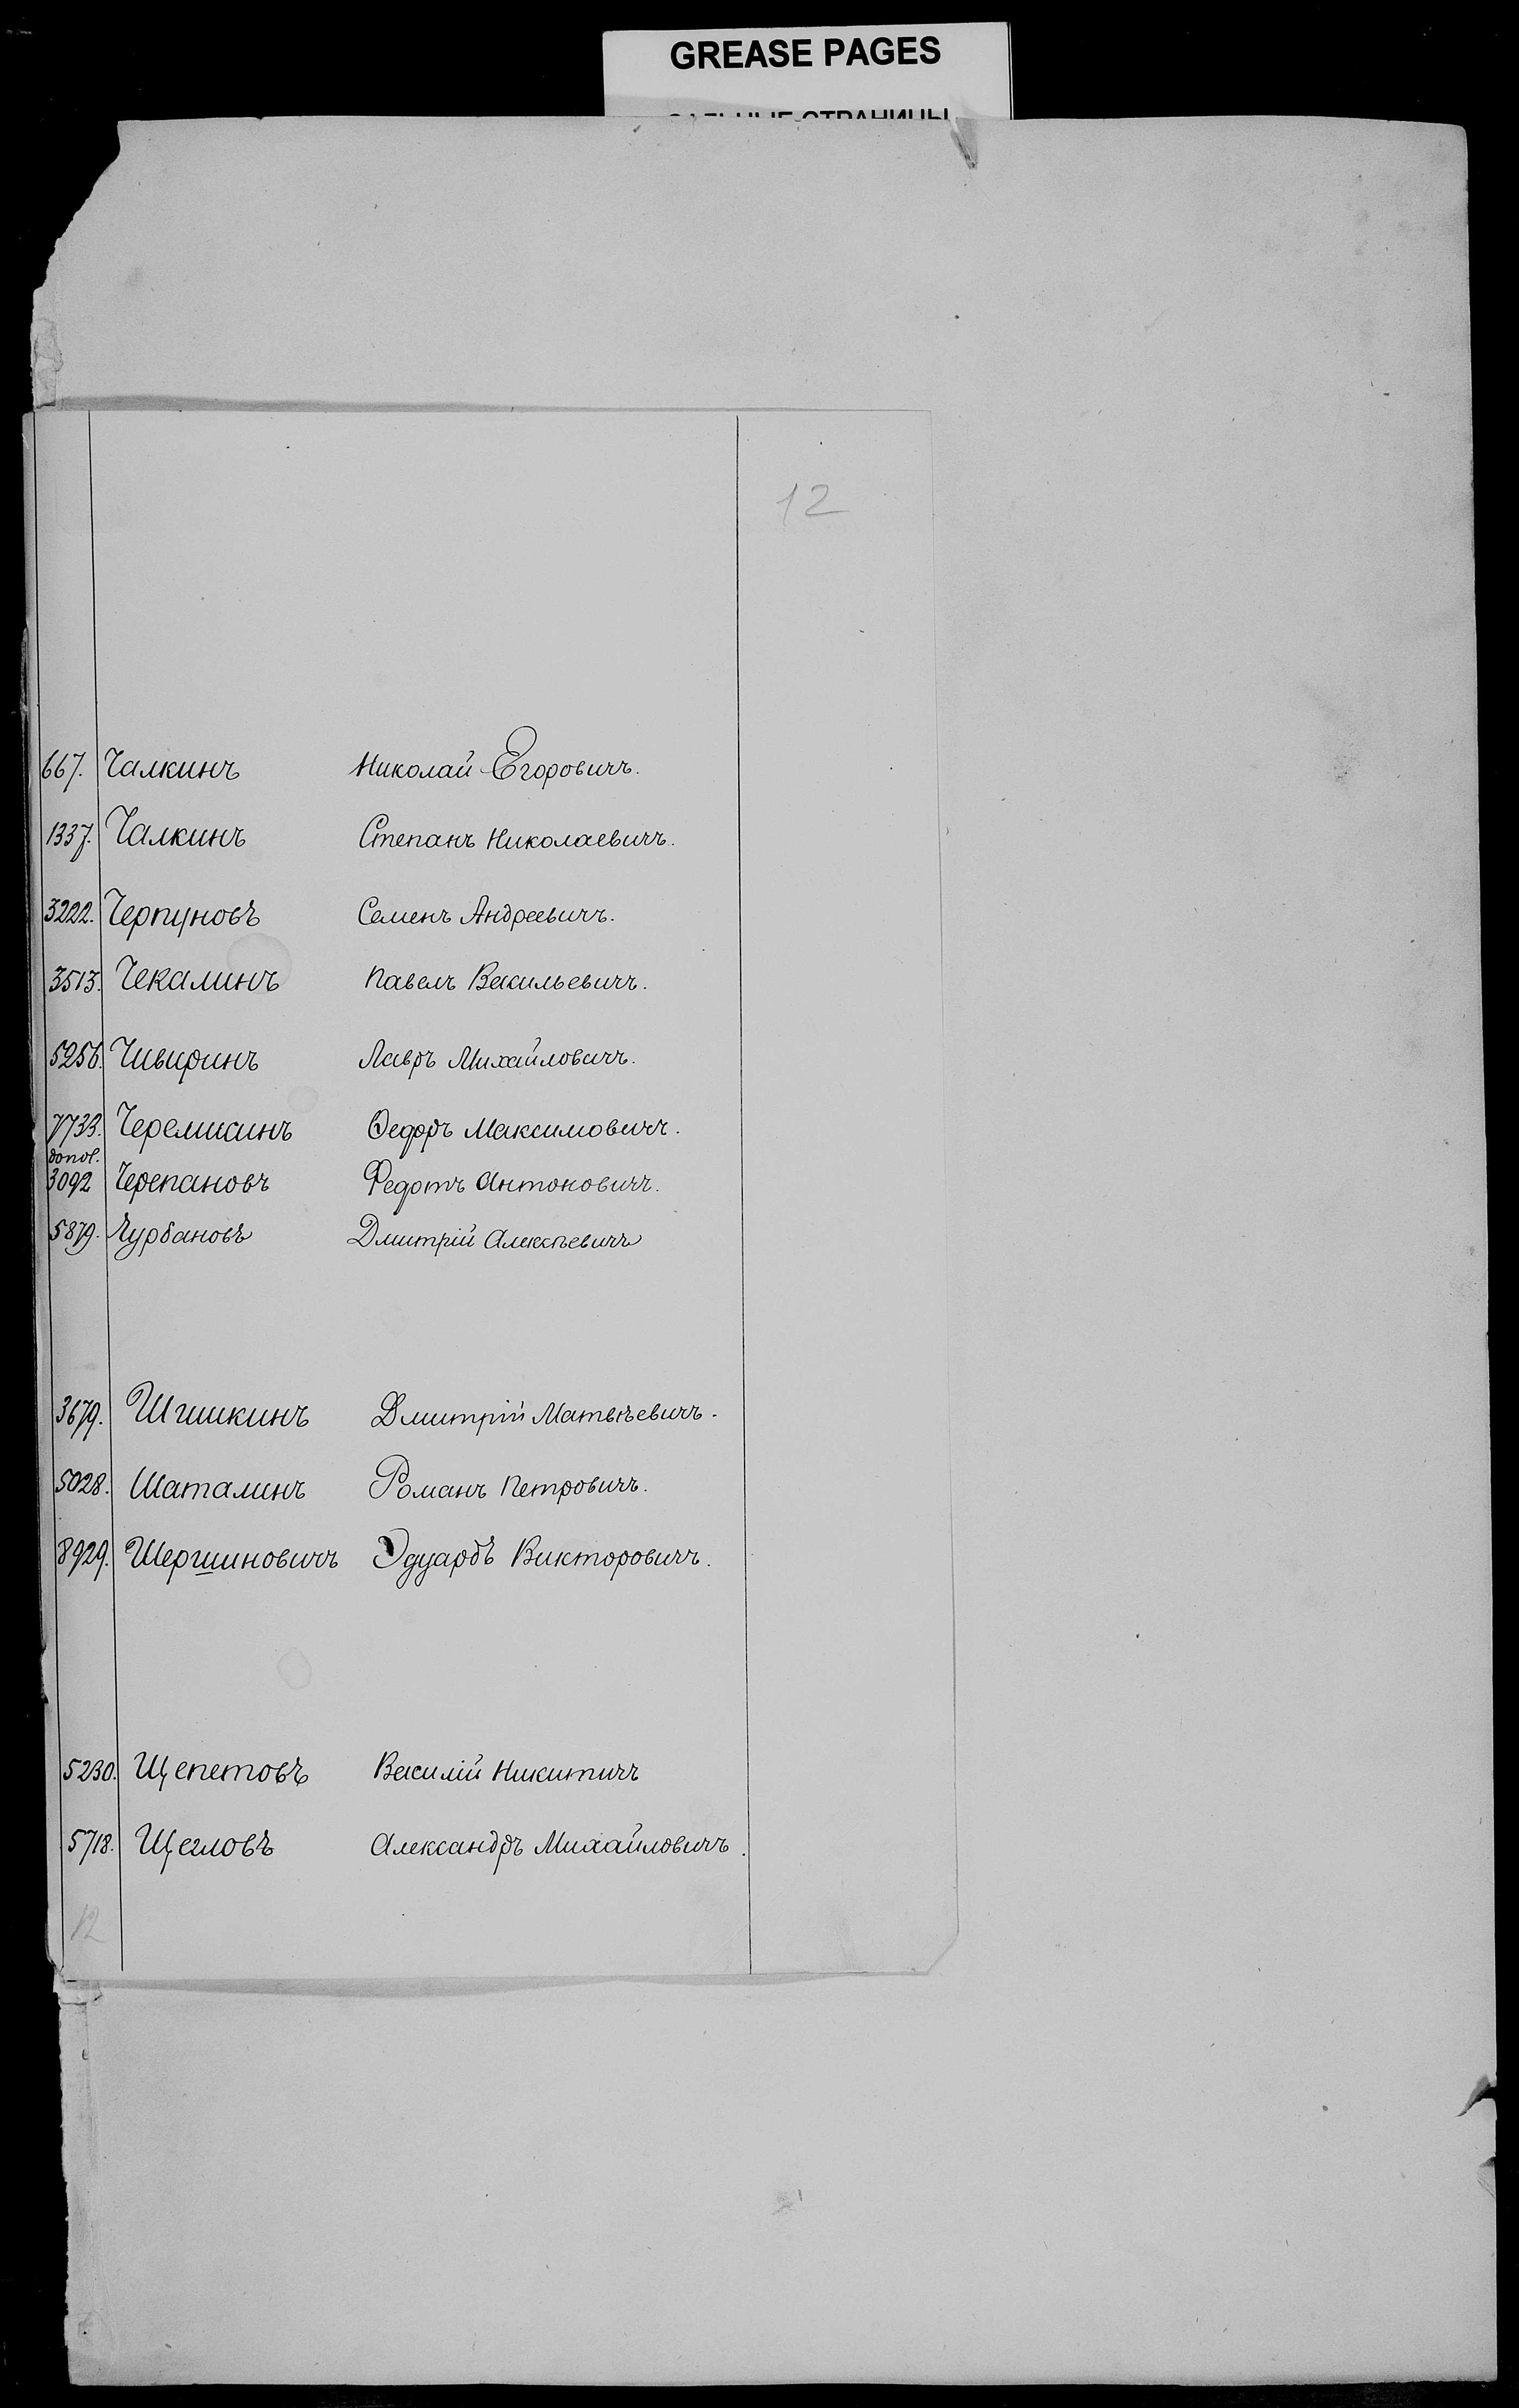 GREASE PAGES
САЛЬНЫЕ СТРАНИЦЫ
12
667. Чалкинъ Николай Егоровичъ.
1337. Чалкинъ Степанъ Николаевичъ.
3222. Черпуновъ Семенъ Андреевичъ.
3513. Чекалинъ Павелъ Васильевичъ.
5256. Чивиринъ Лавръ Михайловичъ.
7733. Черемисинъ Ѳедоръ Максимовичъ.
допол.
3092 Черепановъ Федотъ Антоновичъ.
5879. Чурбановъ Дмитрій Алексѣевичъ
3679. Шишкинъ Дмитрій Матвѣевичъ.
5028. Шаталинъ Романъ Петровичъ.
8929. Шершиновичъ Эдуардъ Викторовичъ.
5230. Щепетовъ Василій Никитичъ
5718. Щегловъ Александръ Михайловичъ.
12